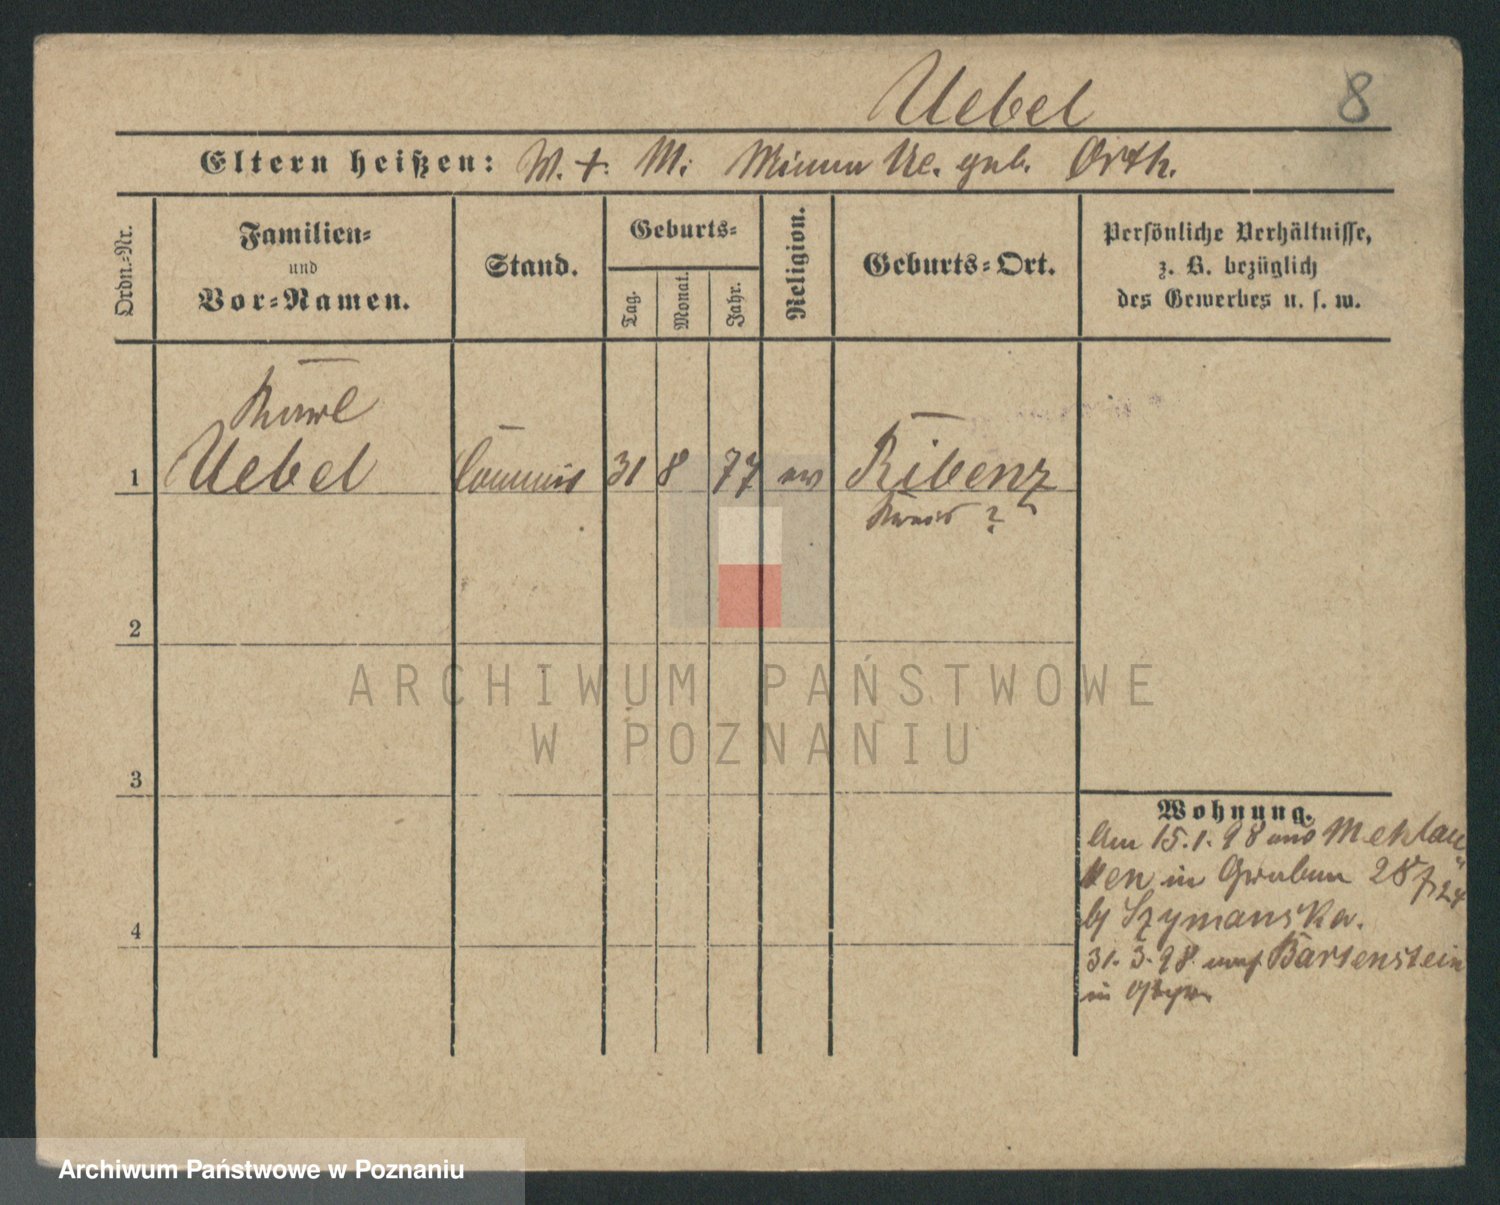 Uebel
8
Eltern heißen: V. +. M: Minna Ue. geb. Orth.
Ordn.-Nr.
Familien-
und
Vor-Namen.
Stand.
Geburts-
Tag.
Monat.
Jahr.
Religion.
Geburts-Ort.
Persönliche Verhältnisse,
z. B. bezüglich
des Gewerbes u. s. w.
Karl
1 Uebel Commis 31 8 77 ev Ribenz
Kreis ?
2
3
4
Wohnung.
Am 15.1.98 aus Meklau
ken in Graben 28
b/ Szymanska.
31.3.98 nach Bartenstein
in Ostpr.
ARCHIWUM PAŃSTWOWE
W POZNANIU
Archiwum Państwowe w Poznaniu